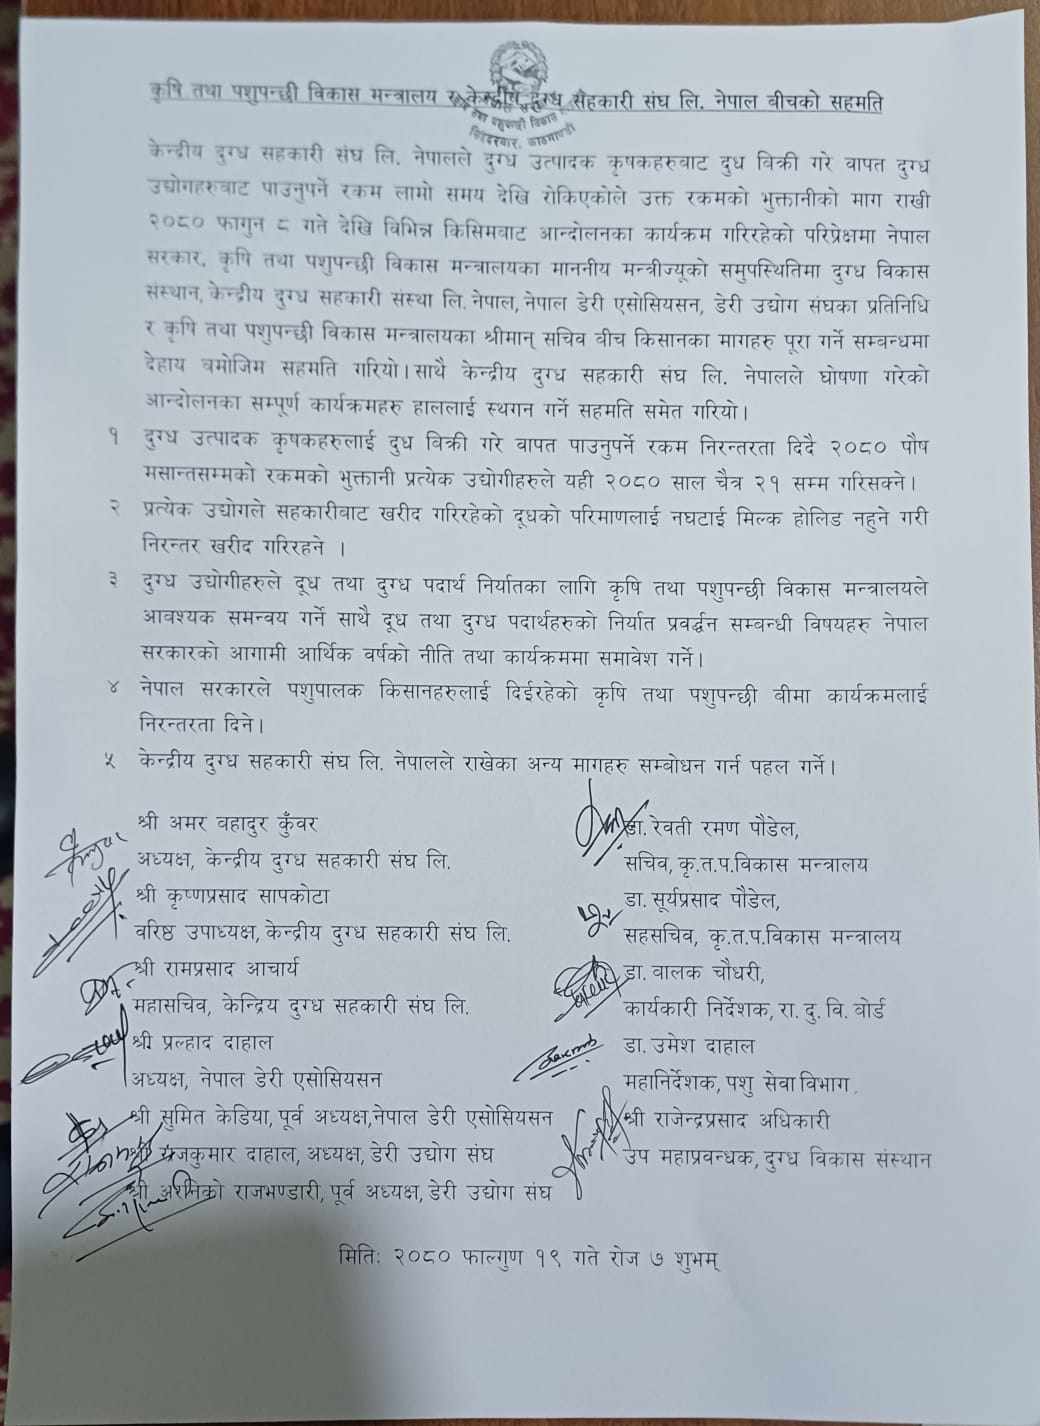 कृषि तथा पशुपन्छी विकास मन्त्रालय र केन्द्रीय दुग्ध सहकारी संघ लि. नेपाल बीचको सहमति
सिंहदरबार, काठमाण्डौ
केन्द्रीय दुग्ध सहकारी संघ लि. नेपालले दुग्ध उत्पादक कृषकहरुबाट दुध विक्री गरे वापत दुग्ध
उद्योगहरुबाट पाउनुपर्ने रकम लामो समय देखि रोकिएकोले उक्त रकमको भुक्तानीको माग राखी
२०८० फागुन ८ गते देखि विभिन्न किसिमबाट आन्दोलनका कार्यक्रम गरिरहेको परिप्रेक्षमा नेपाल
सरकार, कृषि तथा पशुपन्छी विकास मन्त्रालयका माननीय मन्त्रीज्यूको समुपस्थितिमा दुग्ध विकास
संस्थान, केन्द्रीय दुग्ध सहकारी संस्था लि. नेपाल, नेपाल डेरी एसोसियसन, डेरी उद्योग संघका प्रतिनिधि
र कृषि तथा पशुपन्छी विकास मन्त्रालयका श्रीमान् सचिव बीच किसानका मागहरु पूरा गर्ने सम्बन्धमा
देहाय बमोजिम सहमति गरियो। साथै केन्द्रीय दुग्ध सहकारी संघ लि. नेपालले घोषणा गरेको
आन्दोलनका सम्पूर्ण कार्यक्रमहरु हाललाई स्थगन गर्ने सहमति समेत गरियो।
१ दुग्ध उत्पादक कृषकहरुलाई दुध विक्री गरे वापत पाउनुपर्ने रकम निरन्तरता दिदै २०८० पौष
मसान्तसम्मको रकमको भुक्तानी प्रत्येक उद्योगीहरुले यही २०८० साल चैत्र २१ सम्म गरिसक्ने।
२ प्रत्येक उद्योगले सहकारीबाट खरीद गरिरहेको दूधको परिमाणलाई नघटाई मिल्क होलिड नहुने गरी
निरन्तर खरीद गरिरहने ।
३ दुग्ध उद्योगीहरुले दूध तथा दुग्ध पदार्थ निर्यातका लागि कृषि तथा पशुपन्छी विकास मन्त्रालयले
आवश्यक समन्वय गर्ने साथै दूध तथा दुग्ध पदार्थहरुको निर्यात प्रवर्द्धन सम्बन्धी विषयहरु नेपाल
सरकारको आगामी आर्थिक वर्षको नीति तथा कार्यक्रममा समावेश गर्ने।
४ नेपाल सरकारले पशुपालक किसानहरुलाई दिईरहेको कृषि तथा पशुपन्छी बीमा कार्यक्रमलाई
निरन्तरता दिने।
५ केन्द्रीय दुग्ध सहकारी संघ लि. नेपालले राखेका अन्य मागहरु सम्बोधन गर्न पहल गर्ने।
श्री अमर बहादुर कुँवर
अध्यक्ष, केन्द्रीय दुग्ध सहकारी संघ लि.
श्री कृष्णप्रसाद सापकोटा
वरिष्ठ उपाध्यक्ष, केन्द्रीय दुग्ध सहकारी संघ लि.
श्री रामप्रसाद आचार्य
महासचिव, केन्द्रिय दुग्ध सहकारी संघ लि.
श्री प्रल्हाद दाहाल
अध्यक्ष, नेपाल डेरी एसोसियसन
श्री सुमित केडिया, पूर्व अध्यक्ष,नेपाल डेरी एसोसियसन
श्री राजकुमार दाहाल, अध्यक्ष, डेरी उद्योग संघ
श्री अरनिको राजभण्डारी, पूर्व अध्यक्ष, डेरी उद्योग संघ
डा. रेवती रमण पौडेल,
सचिव, कृ.त.प.विकास मन्त्रालय
डा. सूर्यप्रसाद पौडेल,
सहसचिव, कृ.त.प.विकास मन्त्रालय
डा. बालक चौधरी,
कार्यकारी निर्देशक, रा. दु. वि. बोर्ड
डा. उमेश दाहाल
महानिर्देशक, पशु सेवा विभाग
श्री राजेन्द्रप्रसाद अधिकारी
उप महाप्रबन्धक, दुग्ध विकास संस्थान
मिति: २०८० फाल्गुण १९ गते रोज ७ शुभम्